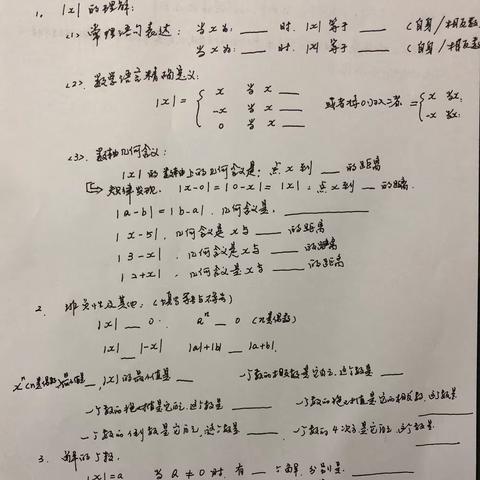 1. |x| 的理解:
(1) 常理语句表达: 当x为: ___ 时. |x| 等于 ___ (自身/相反数
当x为: ___ 时. |x| 等于 ___ (自身/相反数
(2). 数学语言精确定义:
|x| = { x 当 x ___ 或者将0归入二类 = { x 当x:
-x 当 x ___ -x 当x:
0 当 x ___
(3). 数轴几何含义:
|x| 的数轴上的几何含义是: 点 x 到 ___ 的距离
规律发现. |x-0|=|0-x|=|x|, 点x到 ___ 的距离.
|a-b|=|b-a|. 几何含义是, ___
|x-5|. 几何含义是 x与 ___ 的距离
|3-x|. 几何含义是x与 ___ 的距离
|2+x|. 几何含义是x与 ___ 的距离
2. 非负性及其他: (填等号与不等号)
|x| ___ 0. aⁿ ___ 0 (n是偶数)
|x| ___ |-x| |a|+|b| ___ |a+b|.
xⁿ(n是偶数) ___, |x|的最小值是 ___ 一个数的相反数是它自己, 这个数是 ___
一个数的绝对值是它自己, 这个数是 ___ 一个数的绝对值是它的相反数, 这个数是 ___
一个数的倒数是它自己, 这个数是 ___ 一个数的4次方是它自己, 这个数是 ___
3. 解的个数.
|x|=a 当 a≠0 时, 有 ___ 个解, 分别是 ___